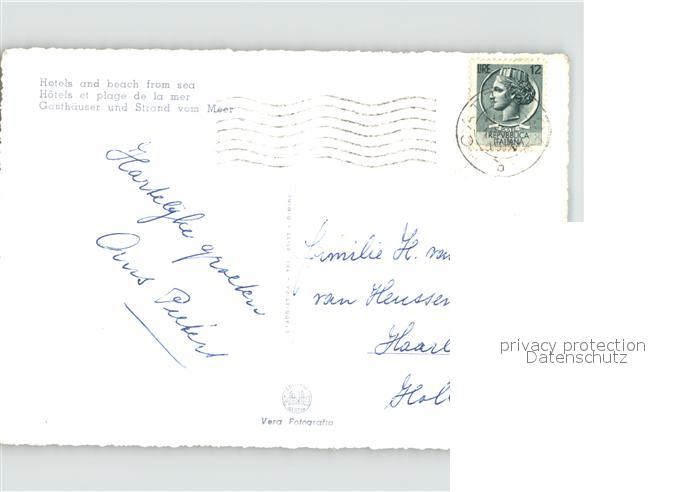 Hotels and beach from sea
Hôtels et plage de la mer
Gasthäuser und Strand vom Meer
LIRE 12
POSTE
REPVBBLICA
ITALIANA
Hartelijke groeten
Familie H. va
van Heussen
Haarl
Holl
Vera Fotografia
privacy protection
Datenschutz